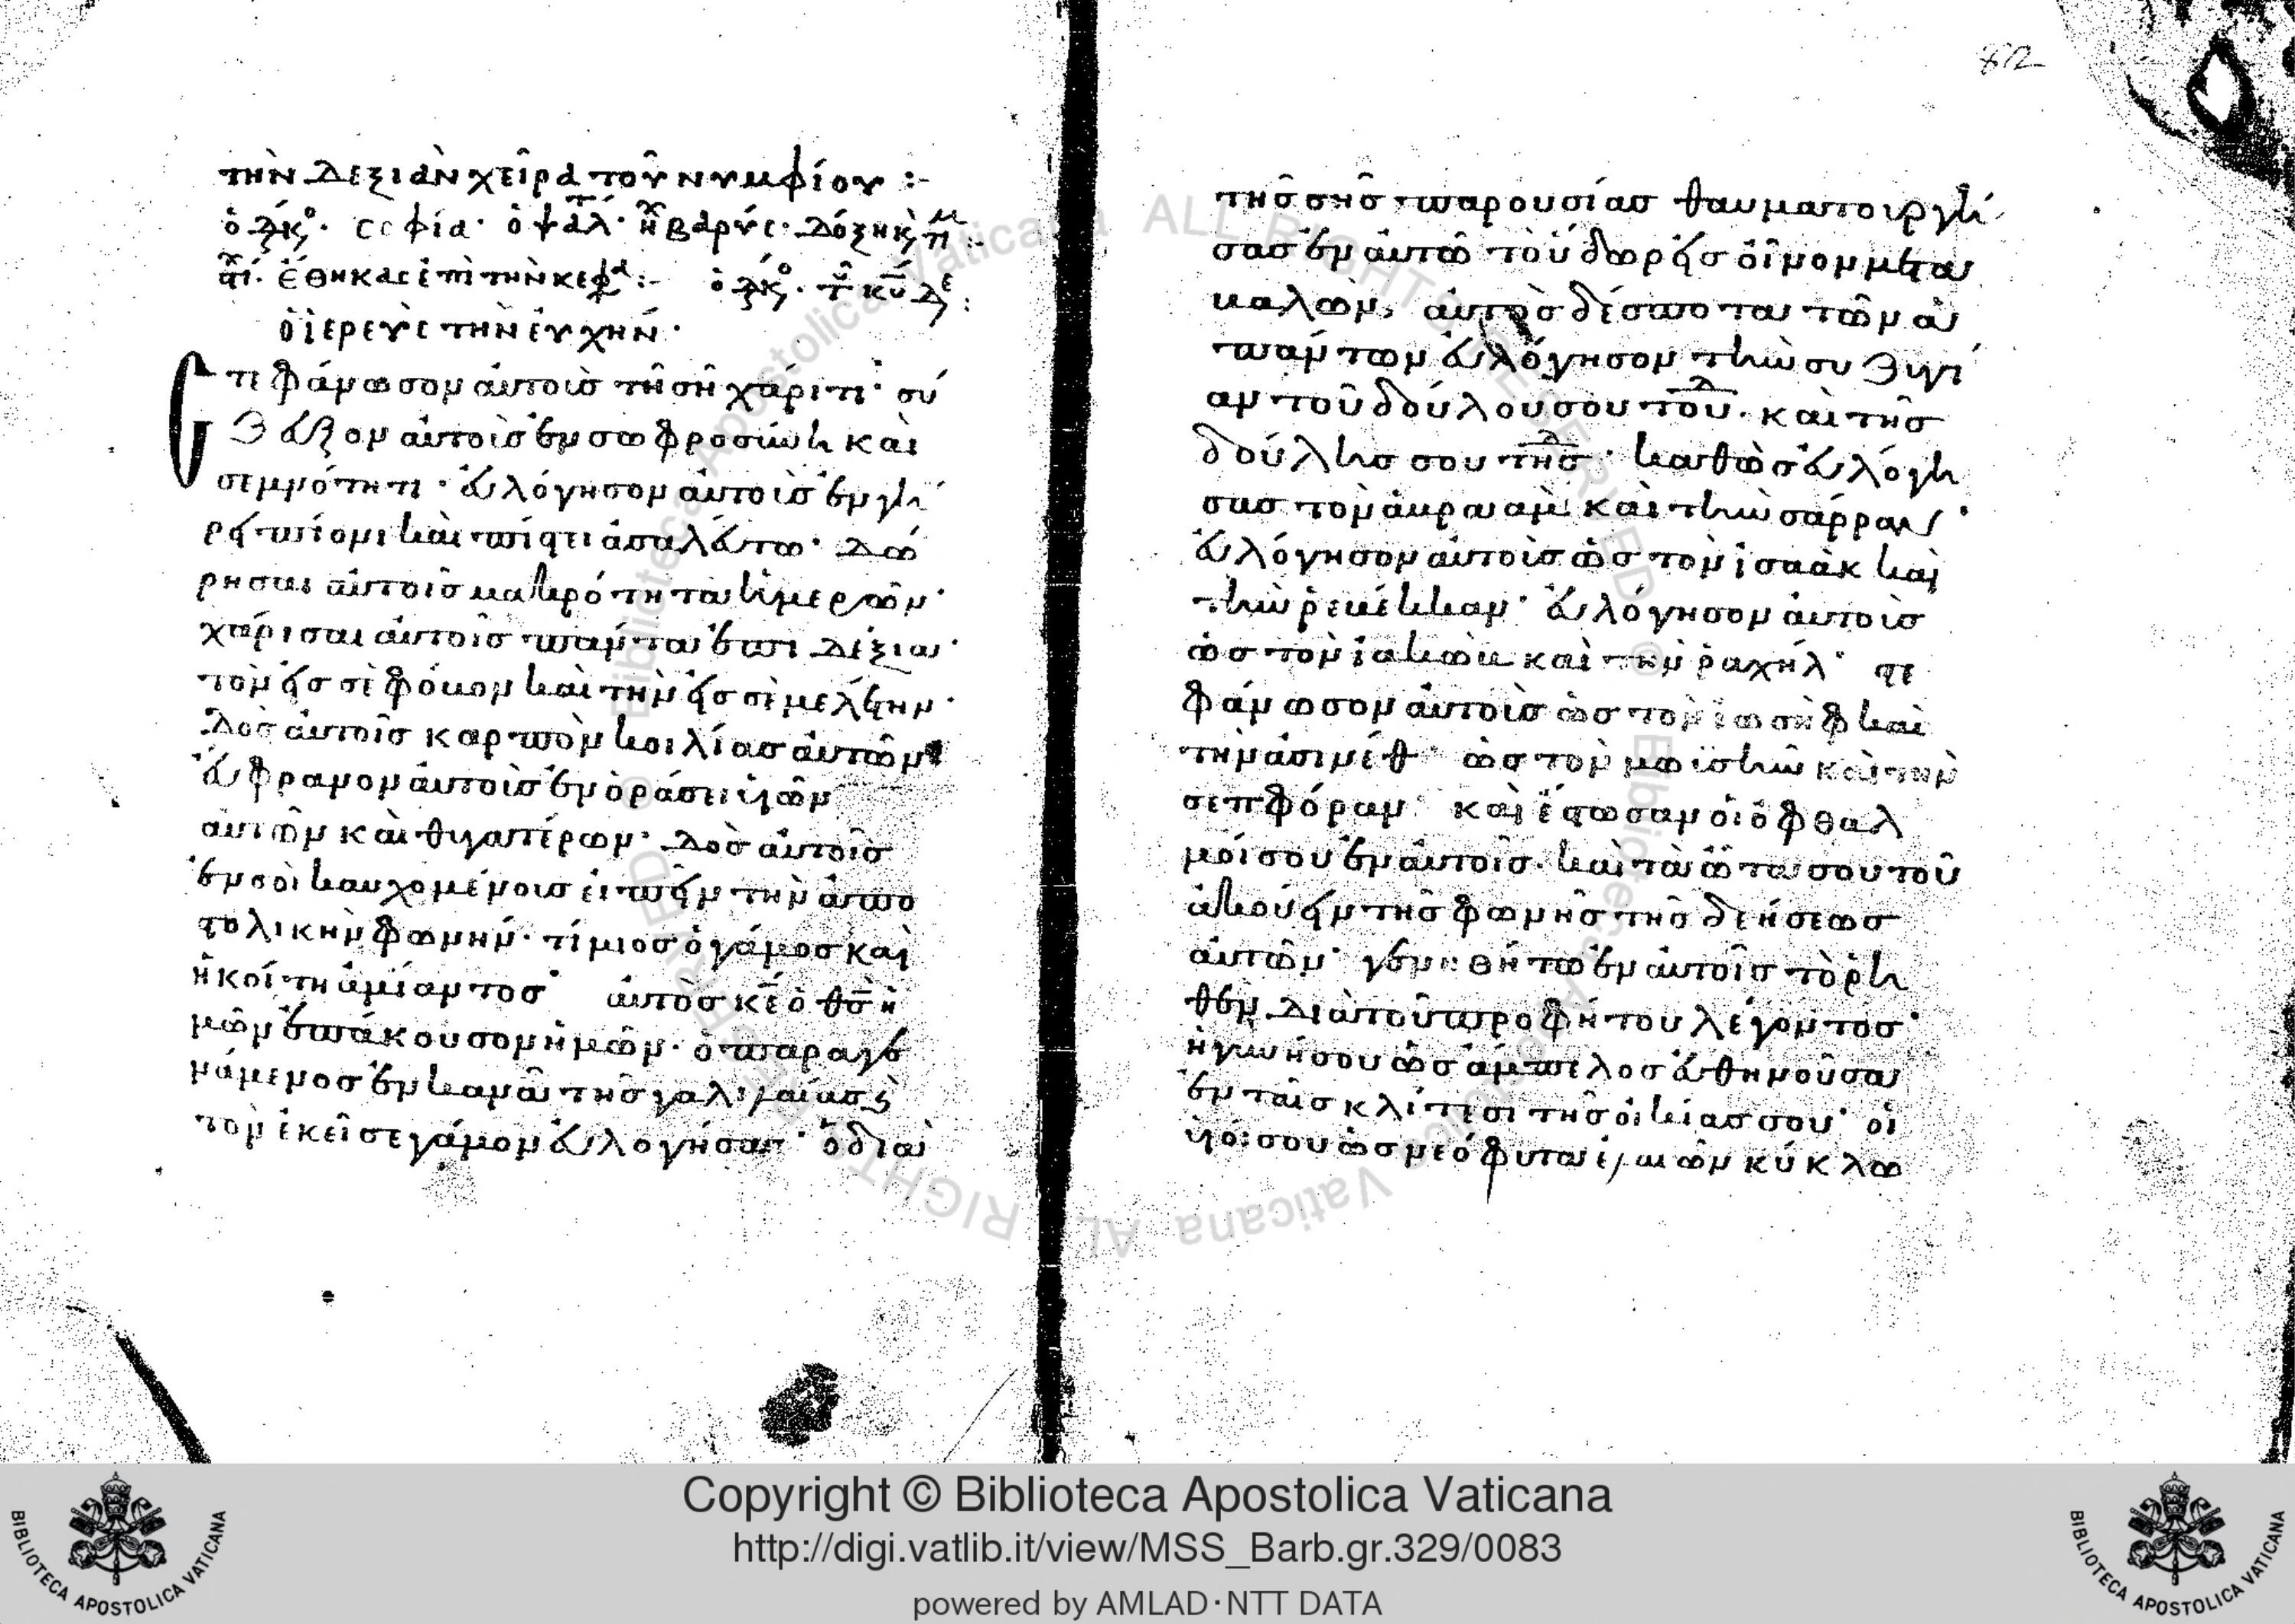 τὴν δεξιὰν χεῖρα τοῦ νυμφίου :-
ὁ διάκο. σοφία· ὁ ψάλτ· ἦχ βαρύς· δόξη κ τιμ :-
στί. ἔθηκας ἐπὶ τὴν κεφα :- ὁ διάκο. τοῦ κυ δε :
ὁ ἱερεὺς τὴν εὐχήν·
Στεφάνωσον αὐτοὺς τῆ σῆ χάριτι· σύ
ζευξον αὐτοὺς ἐν σωφροσύνη καὶ
σεμνότητι· εὐλόγησον αὐτοὺς ἐν γή
ρει πίονι καὶ πίστει ἀσαλεύτω· δώ
ρησαι αὐτοῖς μακρότητα ἡμερῶν·
χάρισαι αὐτοῖς πάντα ἐπι δέξια·
τὸν εἰς σὲ φόβον καὶ τὴν εἰς σὲ μελέτην·
δὸς αὐτοῖς καρπὸν κοιλίας αὐτῶν
εὔφρανον αὐτοὺς ἐν ὁράσει υἱῶν
αὐτῶν καὶ θυγατέρων· δὸς αὐτοῖς
ἐν σοὶ καυχομένοις εἰπεῖν τὴν ἀπο
στολικὴν φωνήν· τίμιος ὁ γάμος καὶ
ἡ κοίτη ἀμίαντος· αὐτὸς κε ὁ θς ἡ
μῶν ἐπάκουσον ἡμῶν· ὁ παραγε
νάμενος ἐν κανᾶ τῆς γαλιλαίας κ
τὸν ἐκεῖσε γάμον εὐλογήσας· ὁ διὰ
82
τῆς σῆς παρουσίας θαυματουργή
σας ἐν αὐτῶ τοῦ δωρεῖς οἶνον μετα
βαλών, αὐτὸς δέσποτα τῶν ἁ
πάντων εὐλόγησον τὴν συζυγί
αν τοῦ δούλου σου τοῦ δ· καὶ τῆς
δούλης σου τῆς δ· καθὼς εὐλόγη
σας τὸν ἀβρααμ καὶ τὴν σάρραν·
εὐλόγησον αὐτοὺς ὡς τὸν ἰσαὰκ καὶ
τὴν ῥεβέκκαν· εὐλόγησον αὐτοὺς
ὡς τὸν ἰακὼβ καὶ τὴν ῥαχήλ· στε
φάνωσον αὐτοὺς ὡς τὸν ἰωσὴφ καὶ
τὴν ἀσινέθ· ὡς τὸν μωϊσῆν καὶ τὴν
σεπφόραν· καὶ ἔστωσαν οἱ ὀφθαλ
μοί σου ἐν αὐτοῖς· καὶ τὰ ὦτα σου τοῦ
ἀκούειν τῆς φωνῆς τῆς δεήσεως
αὐτῶν· γενηθήτω ἐν αὐτοῖς τὸ ῥη
θὲν διὰ τοῦ προφήτου λέγοντος·
ἡ γυνή σου ὡς ἄμπελος εὐθηνοῦσα
ἐν ταῖς κλίτεσι τῆς οἰκίας σου· οἱ
υἱοί σου ὡς νεόφυτα ἐλαιῶν κύκλω
Copyright © Biblioteca Apostolica Vaticana
http://digi.vatlib.it/view/MSS_Barb.gr.329/0083
powered by AMLAD·NTT DATA
BIBLIOTECA APOSTOLICA VATICANA
BIBLIOTECA APOSTOLICA VATICANA